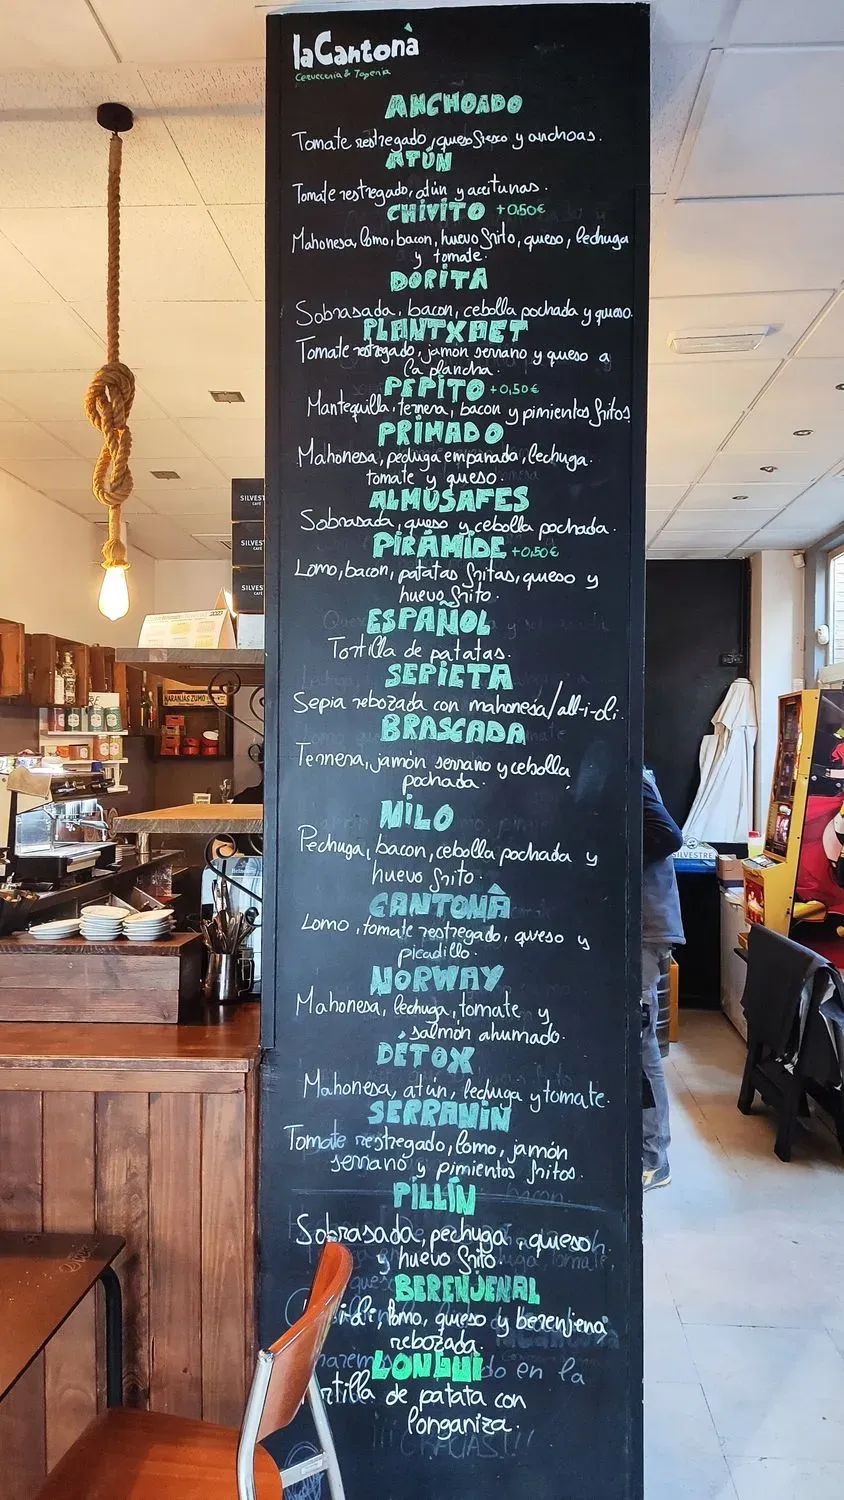 laCantonà
Cervecería & Tapería
ANCHOADO
Tomate restregado, queso fresco y anchoas.
ATÚN
Tomate restregado, atún y aceitunas.
CHIVITO +0,50€
Mahonesa, lomo, bacon, huevo frito, queso, lechuga
y tomate.
DORITA
Sobrasada, bacon, cebolla pochada y queso.
PLANTXAET
Tomate restregado, jamón serrano y queso a
la plancha.
PEPITO +0,50€
Mantequilla, ternera, bacon y pimientos fritos
PRIMADO
Mahonesa, pechuga empanada, lechuga.
tomate y queso.
ALMUSAFES
Sobrasada, queso y cebolla pochada.
PIRÁMIDE +0,50€
Lomo, bacon, patatas fritas, queso y
huevo frito.
ESPAÑOL
Tortilla de patatas.
SEPIETA
Sepia rebozada con mahonesa/all-i-oli.
BRASCADA
Ternera, jamón serrano y cebolla
pochada.
NILO
Pechuga, bacon, cebolla pochada y
huevo frito.
CANTONÀ
Lomo, tomate restregado, queso y
picadillo.
NORWAY
Mahonesa, lechuga, tomate y
salmón ahumado.
DÉTOX
Mahonesa, atún, lechuga y tomate.
SERRANIN
Tomate restregado, lomo, jamón
serrano y pimientos fritos.
PILLÍN
Sobrasada, pechuga, queso
y huevo frito.
BERENJENAL
lomo, queso y berenjena
rebozada.
LONGUI
de patata con
longaniza.
do en la
¡¡¡GRACIAS!!!
SILVEST
CAFÉ
SILVEST
CAFÉ
SILVES
CAFÉ
NARANJAS ZUMO
SILVESTRE